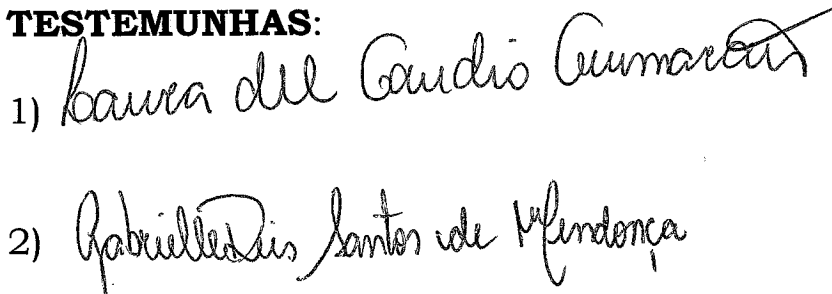 TESTEMUNHAS:
1) Laura del Gaudio Guimarães
2) Gabrielle Santos de Mendonça